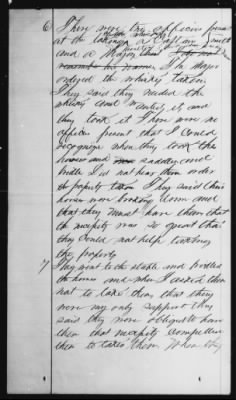 6 There were two officers present
at the
and a Major
The Major
ordered the whiskey taken
They said they needed the
whiskey and wanted it, and
they took it There were no
officers present that I could
recognize when they took the
horses and saddles and
bridle I did not hear them order
the property taken They said their
horses were broken down and
that they must have them that
the necessity was so great that
they could not help taking
the property
7 They went to the stable and bridled
the horses and when I asked them
not to take them, that they
were my only support they
said they were obliged to have
them that necessity compelled
them to take them. When they